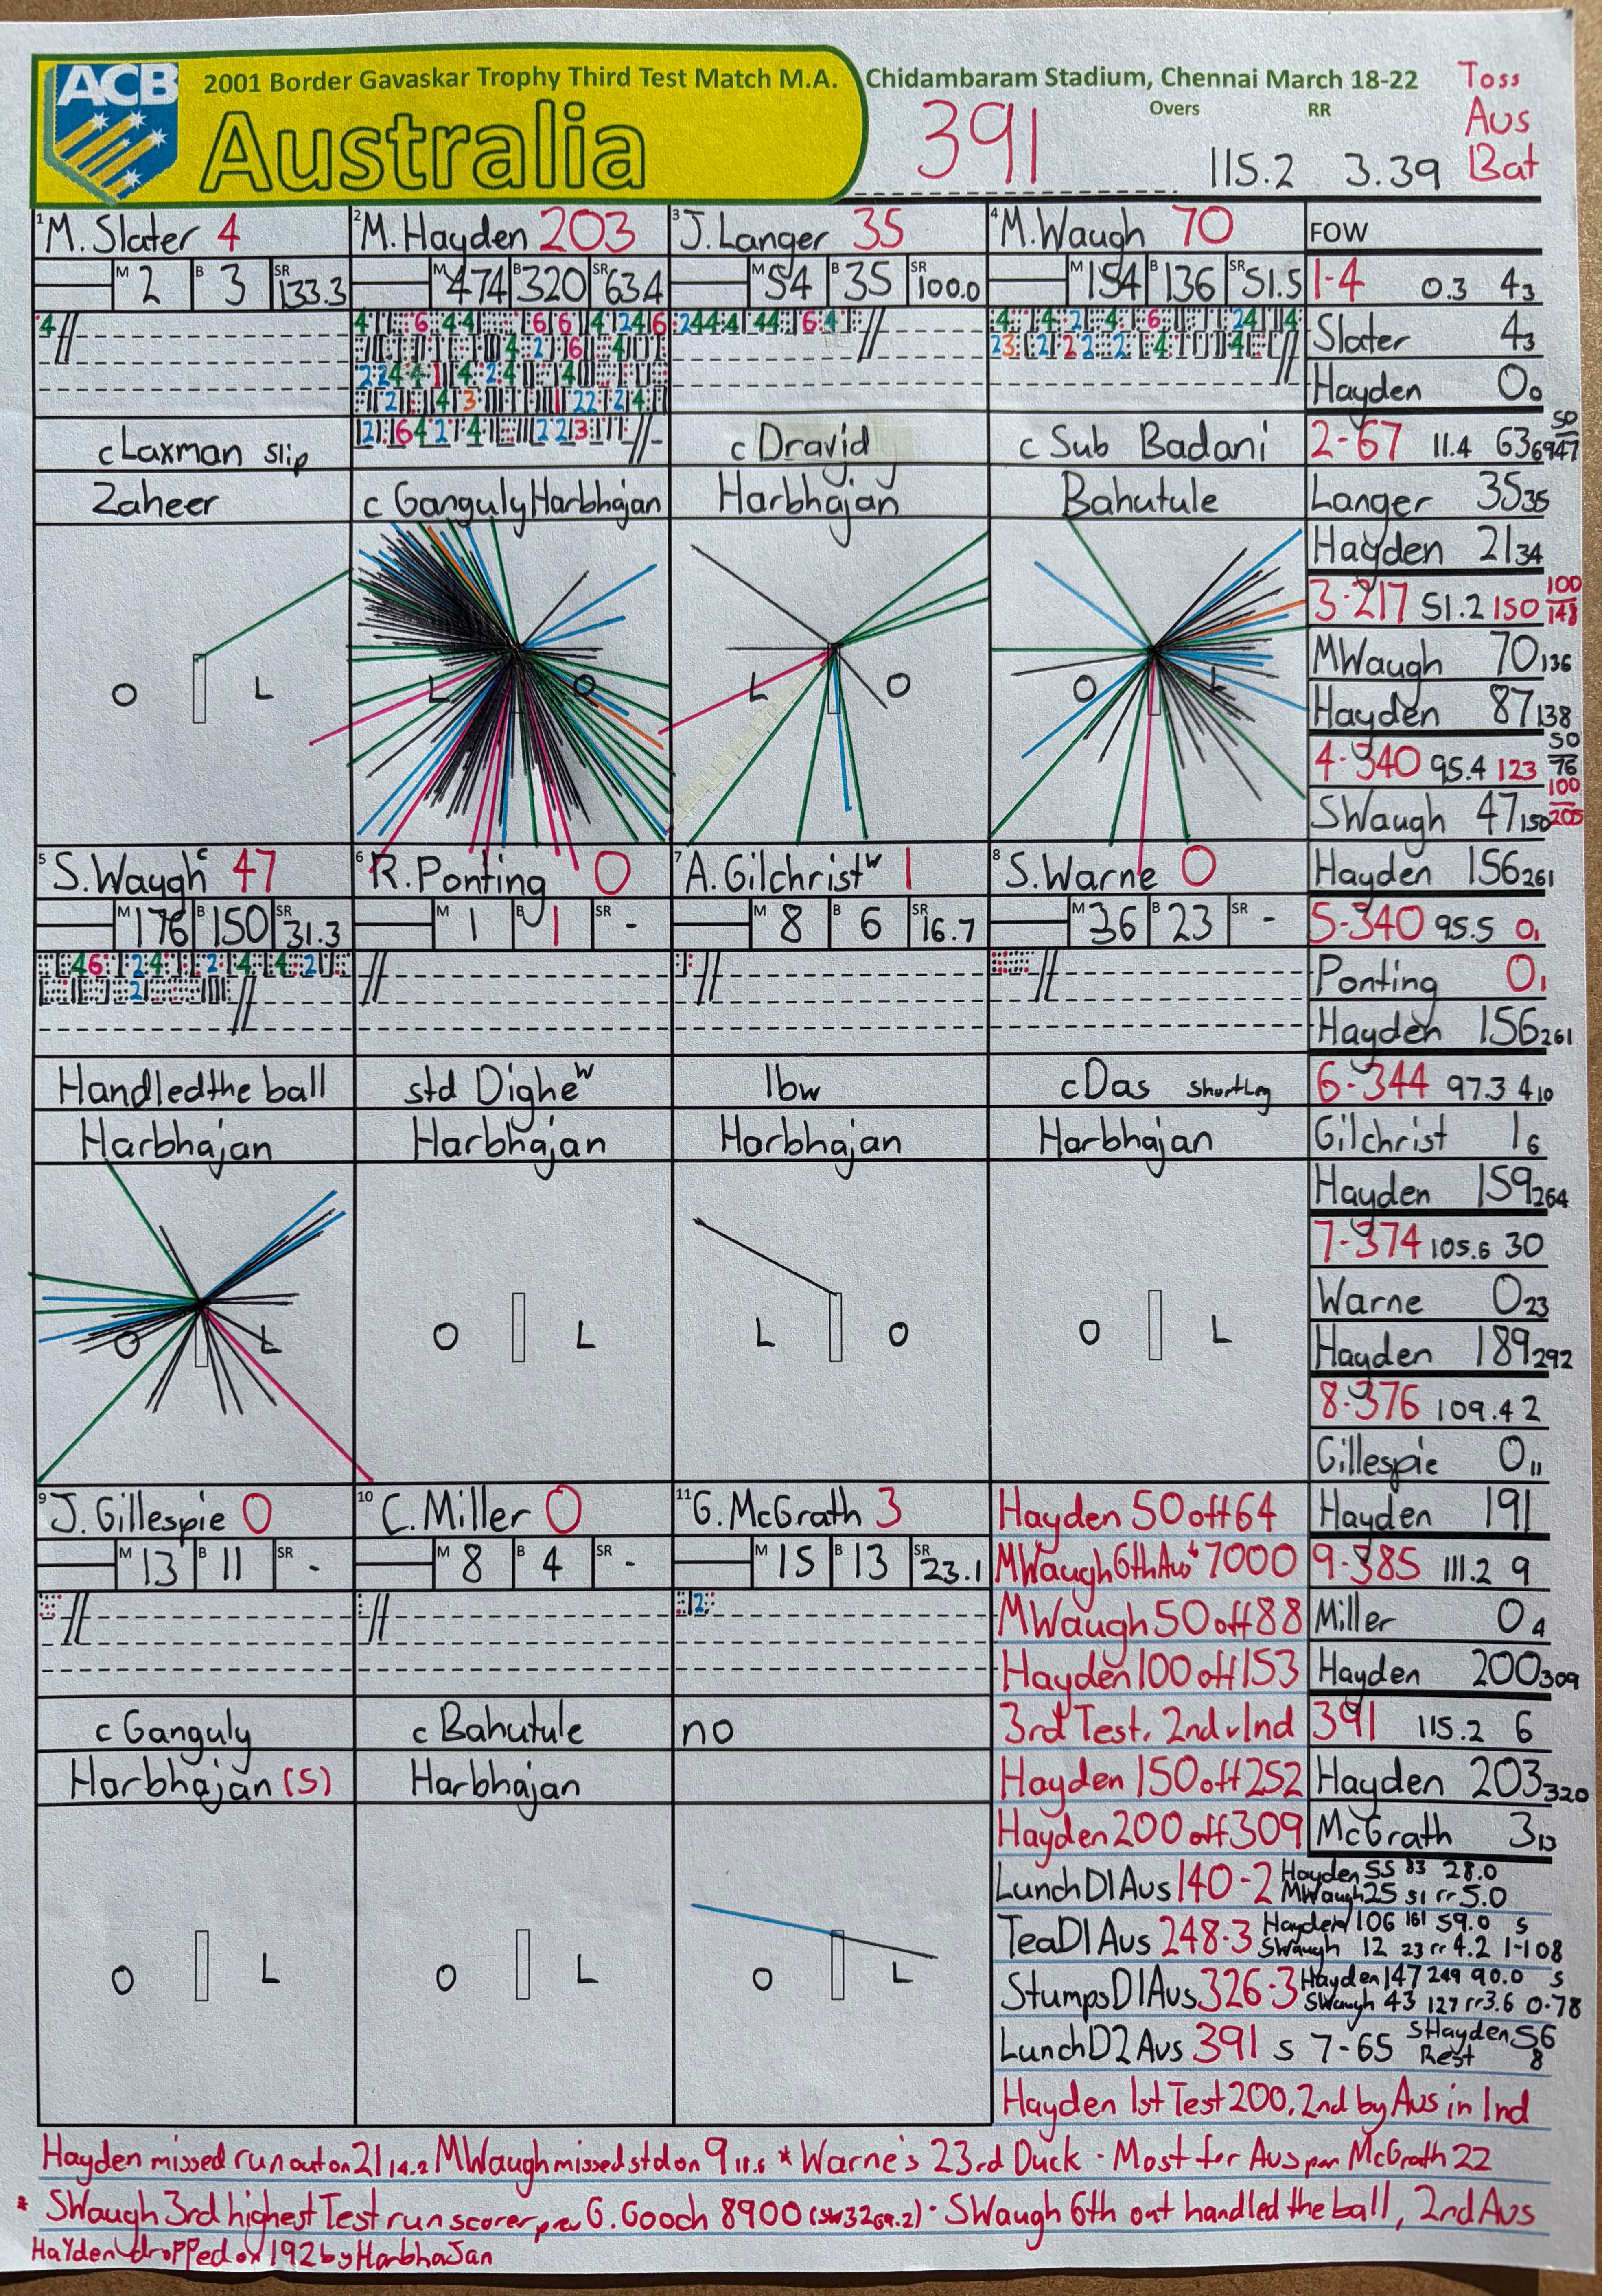 ACB
2001 Border Gavaskar Trophy Third Test Match M.A. Chidambaram Stadium, Chennai March 18-22
Australia
391
Overs RR
115.2 3.39
Toss
Aus
Bat
1 M. Slater 4
M 2 B 3 SR 133.3
4
c Laxman slip
Zaheer
O L
2 M. Hayden 203
M 474 B 320 SR 63.4
c Ganguly Harbhajan
L O
3 J. Langer 35
M 54 B 35 SR 100.0
c Dravid
Harbhajan
L O
4 M. Waugh 70
M 154 B 136 SR 51.5
c Sub Badani
Bahutule
O L
5 S. Waugh c 47
M 176 B 150 SR 31.3
Handled the ball
Harbhajan
O L
6 R. Ponting 0
M 1 B 1 SR -
std Dighe w
Harbhajan
O L
7 A. Gilchrist w 1
M 8 B 6 SR 16.7
lbw
Harbhajan
L O
8 S. Warne 0
M 36 B 23 SR -
c Das short leg
Harbhajan
O L
9 J. Gillespie 0
M 13 B 11 SR -
c Ganguly
Harbhajan (5)
O L
10 C. Miller 0
M 8 B 4 SR -
c Bahutule
Harbhajan
O L
11 G. McGrath 3
M 15 B 13 SR 23.1
no
O L
FOW
1-4 0.3 4 3
Slater 4 3
Hayden 0 0
2-67 11.4 63 69 50/47
Langer 35 35
Hayden 21 34
3-217 51.2 150 100/148
M Waugh 70 136
Hayden 87 138
4-340 95.4 123 50/76 100/205
S Waugh 47 150
Hayden 156 261
5-340 95.5 0 1
Ponting 0 1
Hayden 156 261
6-344 97.3 4 10
Gilchrist 1 6
Hayden 159 264
7-374 105.6 30
Warne 0 23
Hayden 189 292
8-376 109.4 2
Gillespie 0 11
Hayden 191
9-385 111.2 9
Miller 0 4
Hayden 200 309
391 115.2 6
Hayden 203 320
McGrath 3 13
Hayden 50 off 64
M Waugh 6th Aus 7000
M Waugh 50 off 88
Hayden 100 off 153
3rd Test. 2nd v Ind
Hayden 150 off 252
Hayden 200 off 309
Lunch D1 Aus 140-2 Hayden 55 83 28.0
M Waugh 25 51 rr 5.0
Tea D1 Aus 248-3 Hayden 106 161 59.0 s
S Waugh 12 23 rr 4.2 1-108
Stumps D1 Aus 326-3 Hayden 147 249 90.0 s
S Waugh 43 127 rr 3.6 0-78
Lunch D2 Aus 391 s 7-65 s Hayden 56
Rest 8
Hayden 1st Test 200. 2nd by Aus in Ind
Hayden missed run out on 21 14.2 M Waugh missed std on 9 * Warne's 23rd Duck - Most for Aus McGrath 22
* S Waugh 3rd highest Test run scorer prev G. Gooch 8900 · S Waugh 6th out handled the ball, 2nd Aus
Hayden dropped on 192 by Harbhajan